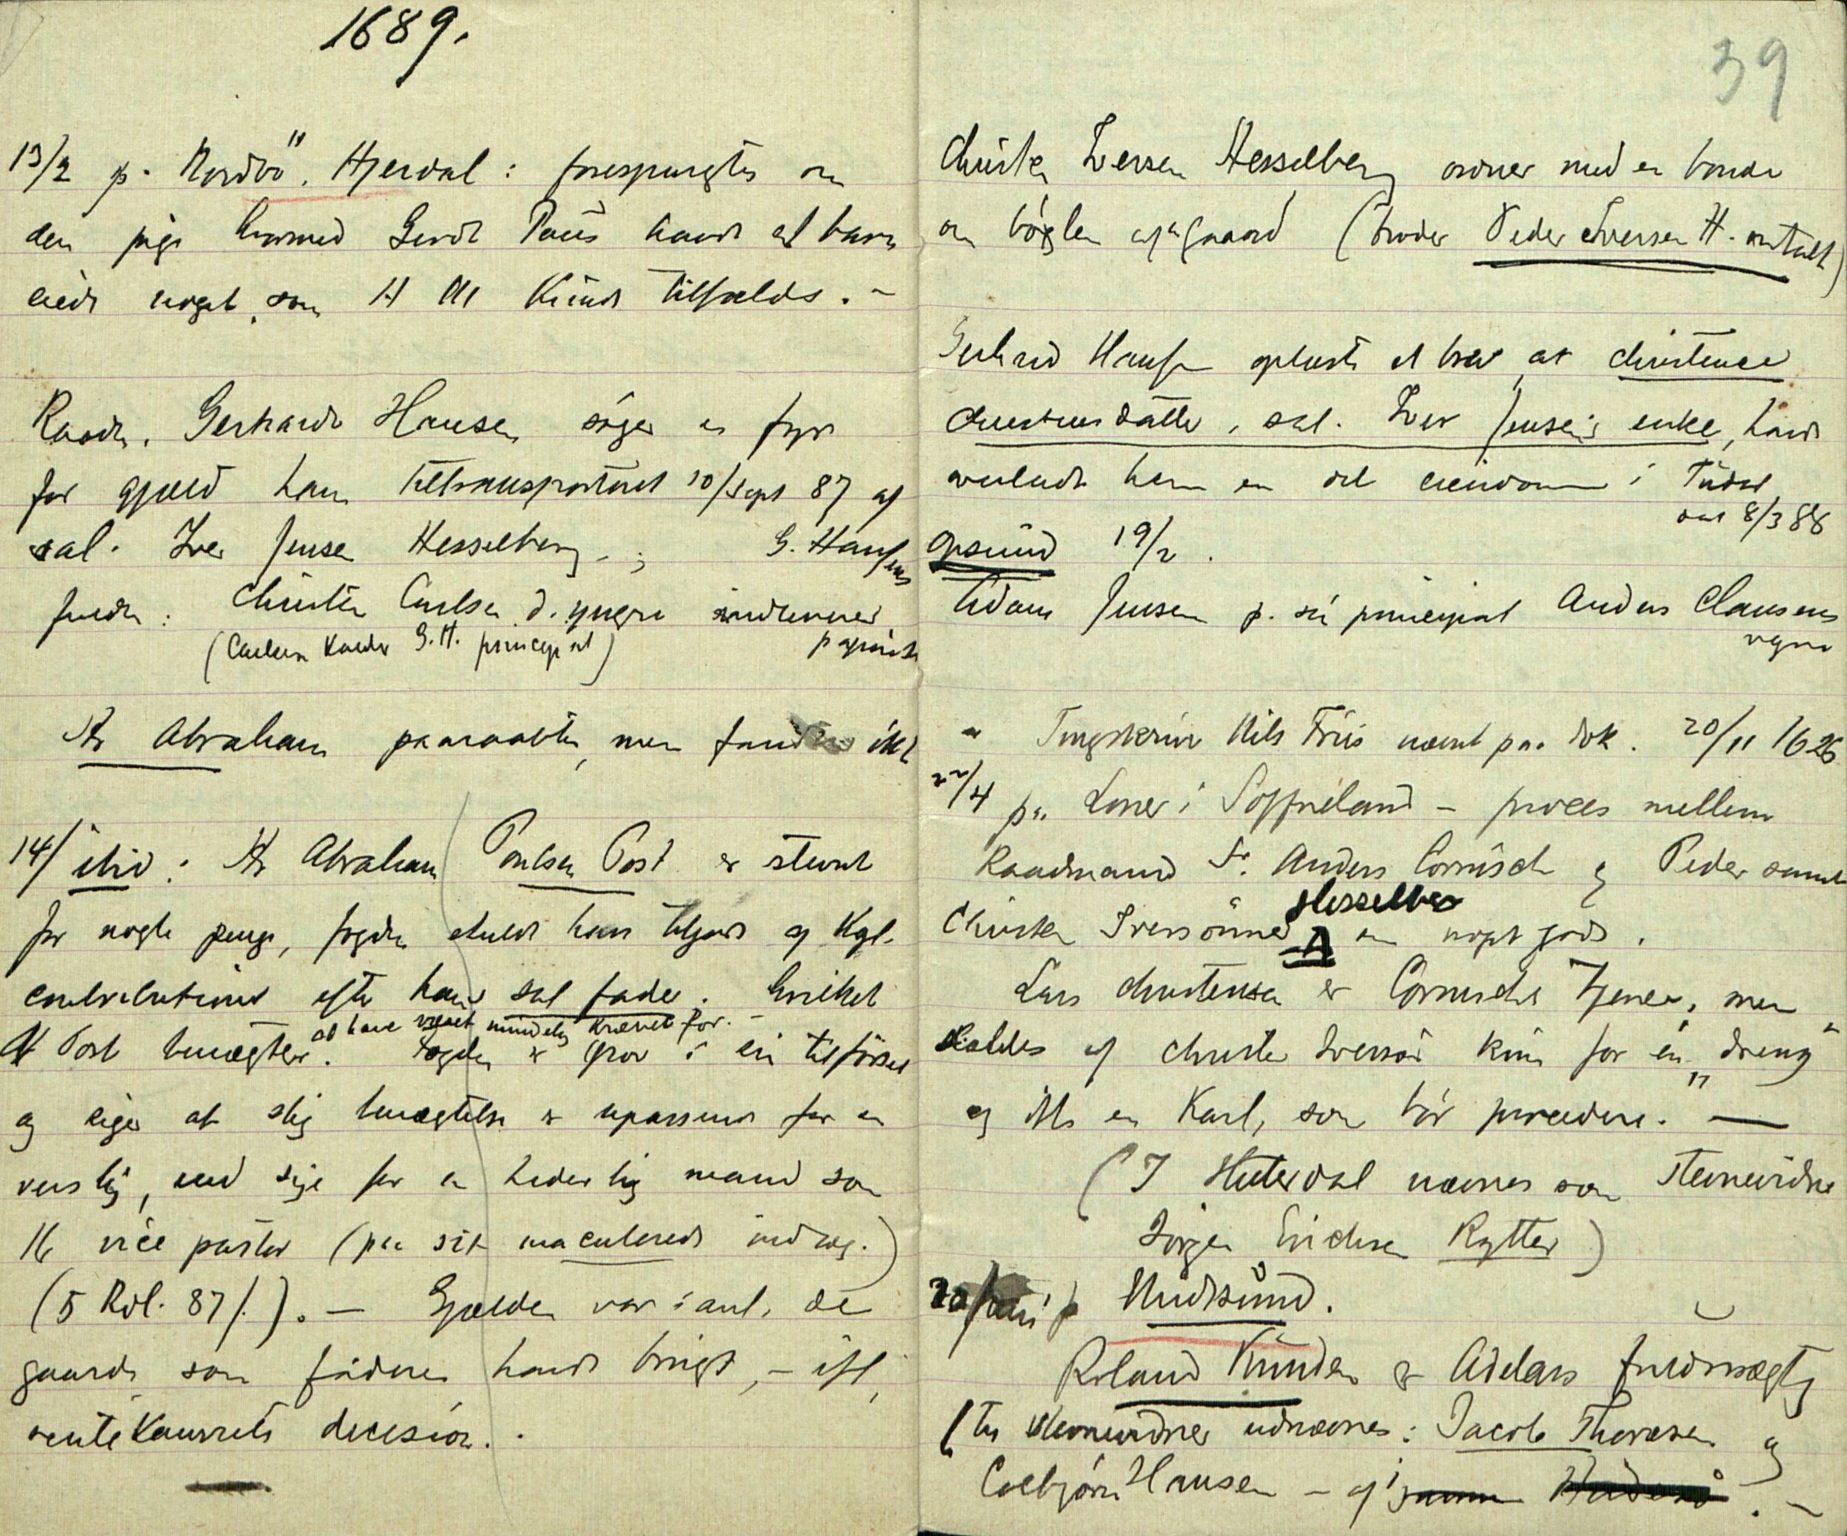 1689.
13/2 p. Nordbö. Hjerdal: forespurgtes om
den pige hvormed Gerdt Paus havde et barn
eiede noget, som H M Kunde tilfalde. -
Raadm. Gerhardt Hansen søger en fyr
for gjæld ham tiltransporteret 10/sept 87 af
sal. Iver Jensen Hesselberg -; G. Hansens
fuldm: Christen Carlsen d. yngre indleverer
(Carlsen Kalder G.H. principal) papirer
Hr Abraham paaraabtes, men fandtes ikke
14/ ibid: Hr Abraham Poulsen Post er stevnt
for nogle penge, fogden skulde have tilgode og Kgl.
contributioner efter hans sal fader. Hvilket
at have været mindelig krævet for. -
H Post benægter. Fogden er grov i sin tilførsel
og siger at slig benægtelse er upassende for en
verslig, end sige for en hederlig mand som
Hr vice pastor (paa sit maculerede indlæg.)
(5 Rdl. 87/.). - Gjælden var i anl. de
gaarde som faderen havde brugt, - ifl.
rentekammerets decision.
39
Christen Iversen Hesselberg ordner med en bonde
om bøxlen af gaard (broder Peder Iversen H. omtalt)
Gerhard Hansen oplæste et brev at Christence
Christensdatter, sal. Iver Jensens enke, havde
avladt ham en del eiendom i Tudal
dat 8/3 88
Opsund 19/2.
Adam Jensen p. sin principal Anders Clausens
vegne
" Tingskriver Nils Friis nævnt paa dok. 20/11 1626
22/4 paa Loner i Søffueland - proces mellem
Raadmand Sr. Anders Cornisch og Peder samt
Christen Iversönner Hesselberg om noget gods.
Lars Christensen er Cornischs Tjener, men
kaldes af Christen Iversön kun for en "dreng"
og ikke en Karl, som bör procedere. -
(I Hiterdal nævnes som Stevnevidne
Jørgen Erichsen Rytter)
20/juni p Hudksund.
Roland Kunden er Adelars fuldmægtig
(til stevnevidner udnævnes: Jacob Thoresen og
Colbjørn Hansen - af